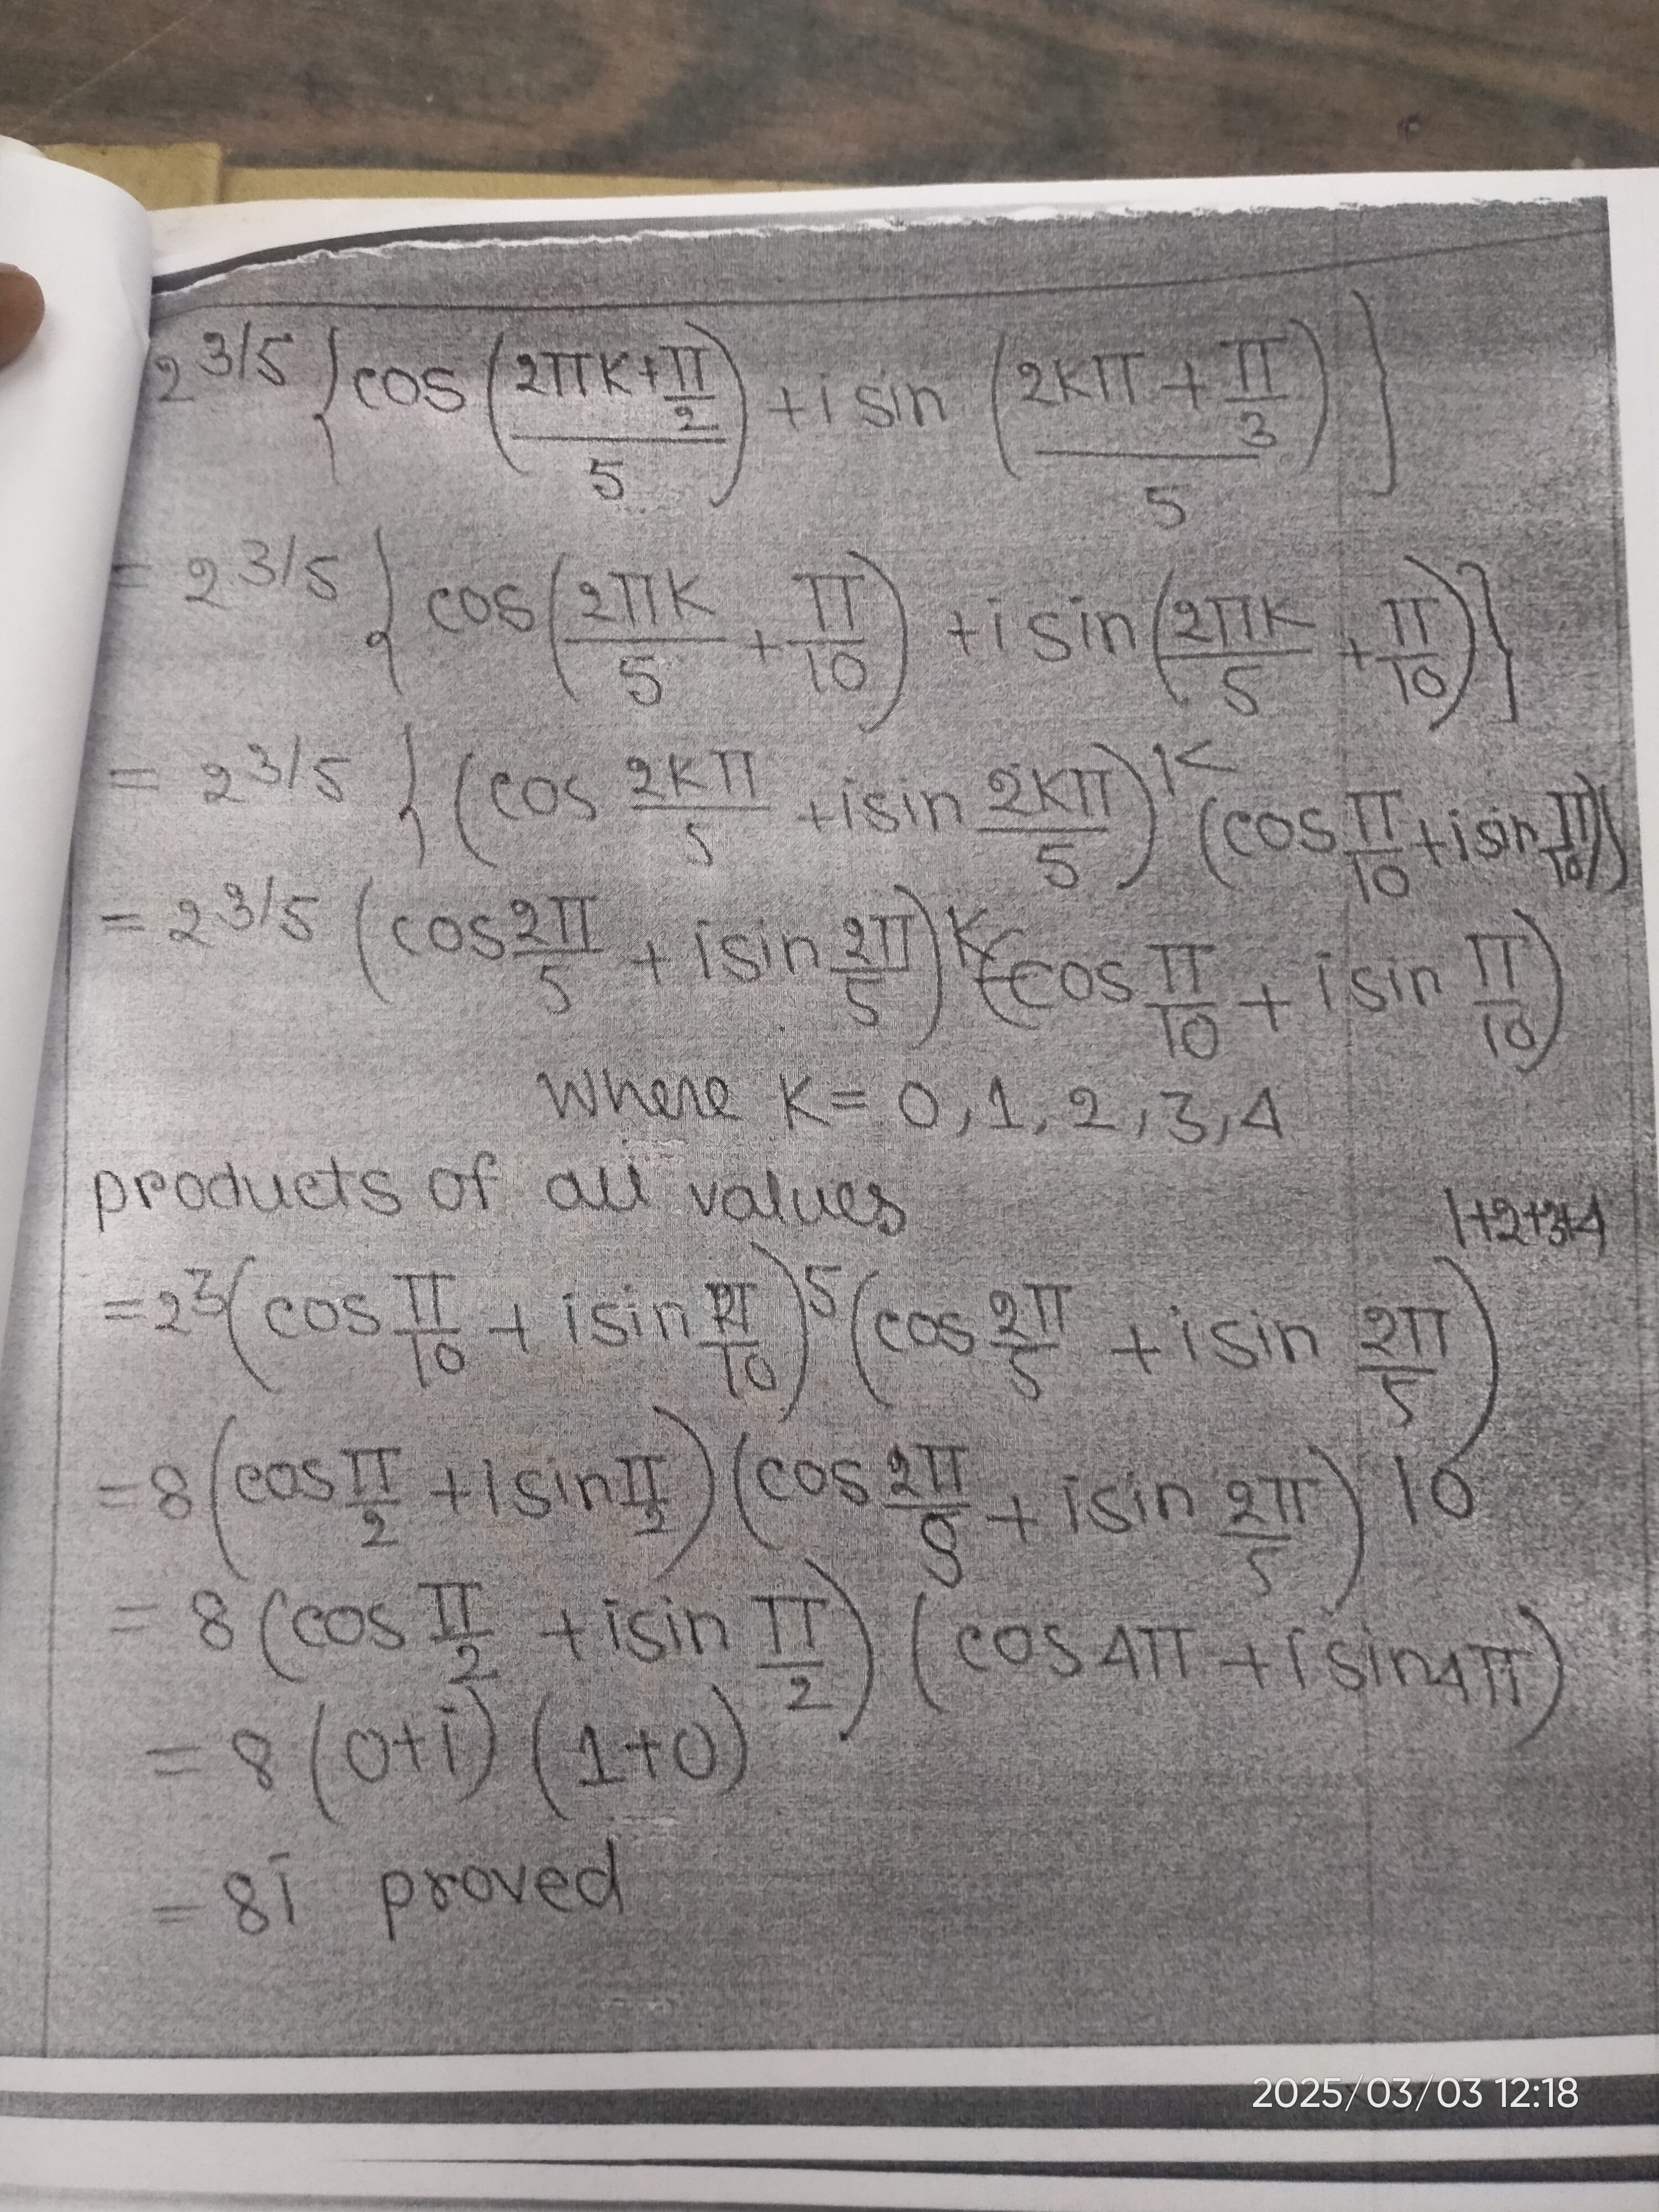 2^3/5 {cos((2πK+π/2)/5) + i sin((2Kπ + π/3)/5)}
= 2^3/5 {cos(2πK/5 + π/10) + i sin(2πK/5 + π/10)}
= 2^3/5 {(cos 2Kπ/5 + i sin 2Kπ/5)^K (cos π/10 + i sin π/10)}
= 2^3/5 (cos 2π/5 + i sin 2π/5)^K (cos π/10 + i sin π/10)
where K = 0, 1, 2, 3, 4
products of all values
= 2^3 (cos π/10 + i sin π/10)^5 (cos 2π/5 + i sin 2π/5)^1+2+3+4
= 8 (cos π/2 + i sin π/2) (cos 2π/5 + i sin 2π/5)^10
= 8 (cos π/2 + i sin π/2) (cos 4π + i sin 4π)
= 8 (0+i) (1+0)
= 8i proved
2025/03/03 12:18